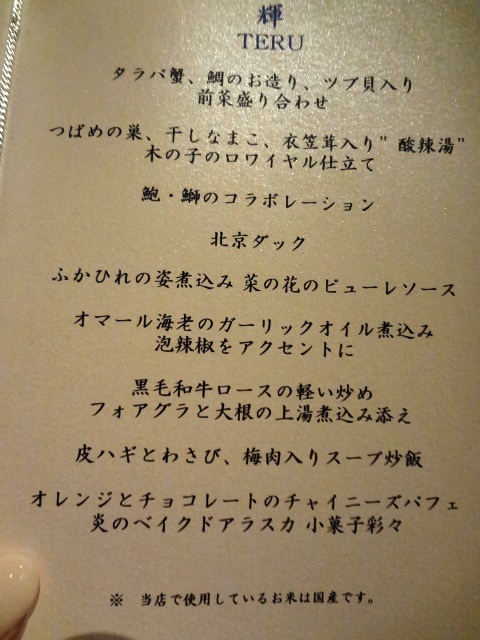 輝
TERU
タラバ蟹、鯛のお造り、ツブ貝入り
前菜盛り合わせ
つばめの巣、干しなまこ、衣笠茸入り”酸辣湯”
木の子のロワイヤル仕立て
鮑・鰤のコラボレーション
北京ダック
ふかひれの姿煮込み 菜の花のピューレソース
オマール海老のガーリックオイル煮込み
泡辣椒をアクセントに
黒毛和牛ロースの軽い炒め
フォアグラと大根の上湯煮込み添え
皮ハギとわさび、梅肉入りスープ炒飯
オレンジとチョコレートのチャイニーズパフェ
炎のベイクドアラスカ 小菓子彩々
※ 当店で使用しているお米は国産です。